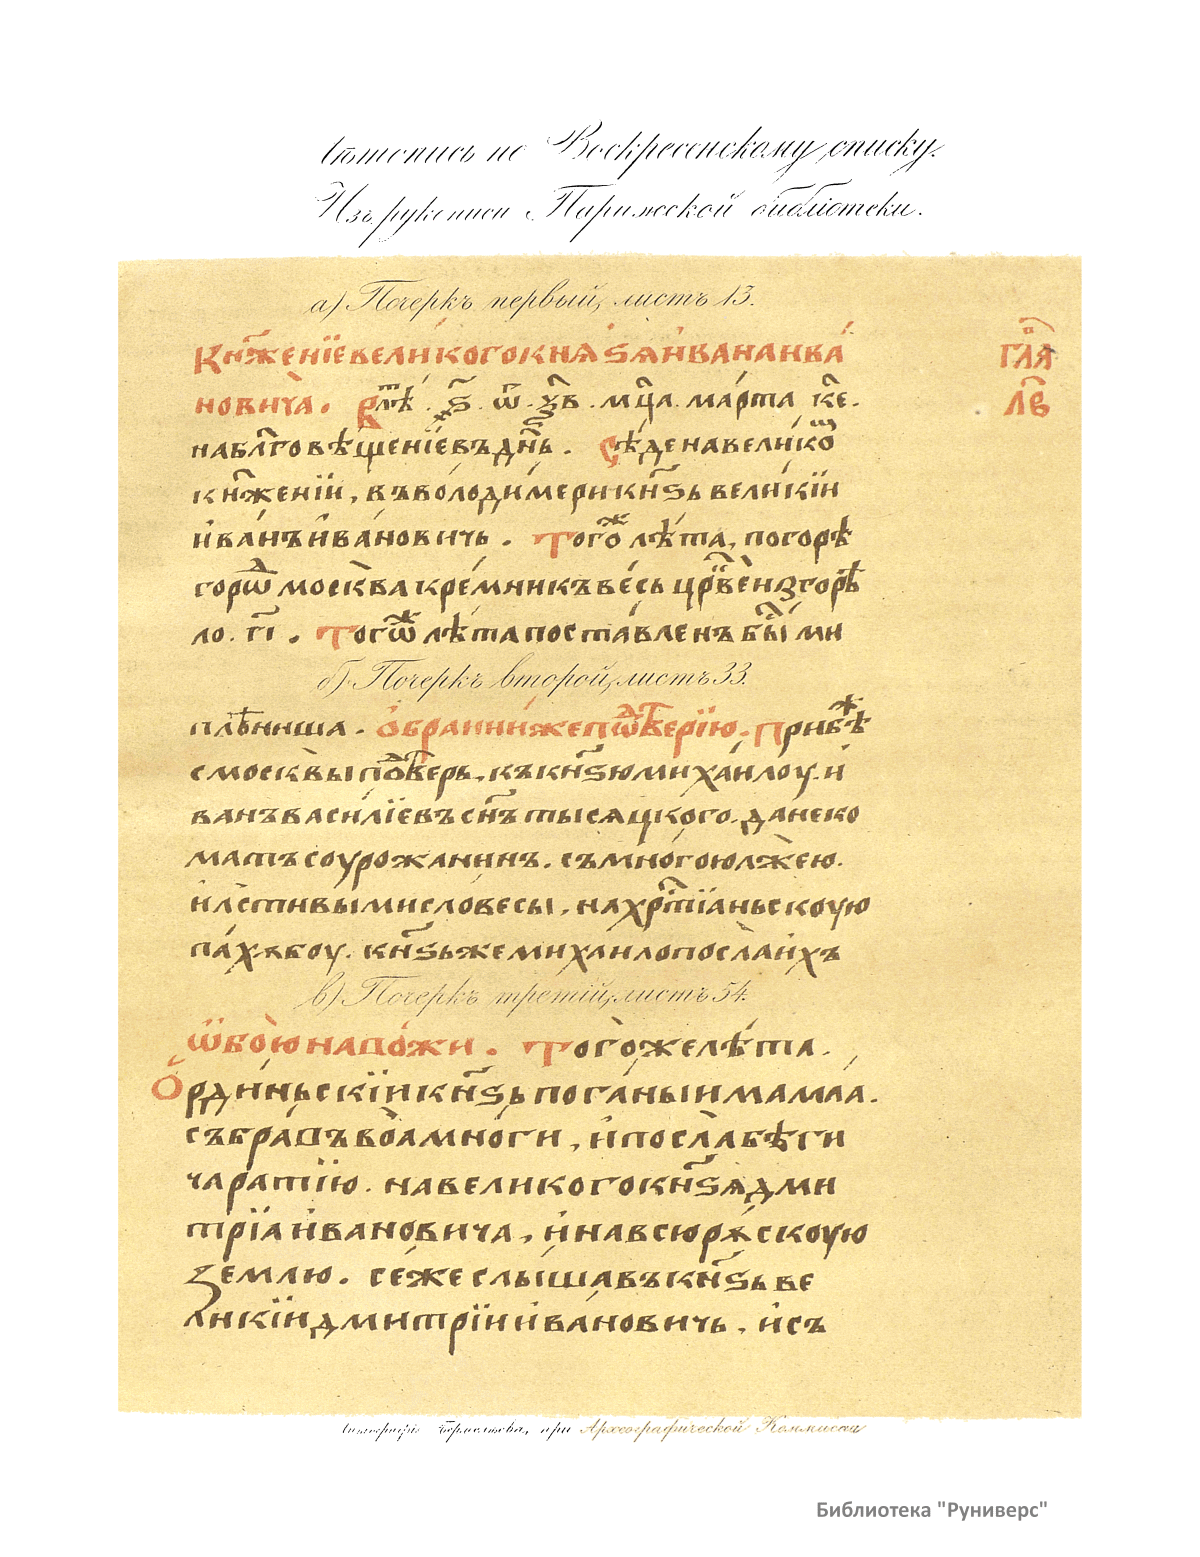 Лѣтопись по Воскресенскому списку.
Изъ рукописи Парижской библіотеки.
а) Почеркъ первый, листъ 13.
Кн҃женїе великого кнѧѕѧ ивана ива гла
новича. В лѣ. ѕ҃. ѿ. ѯ҃в. мц҃а. марта к҃е. л҃в
на бл҃говѣщенїе въ дн҃ь. Сѣде на велико
кн҃женїи, въ володимери кн҃ѕь великїи
иванъ ивановичь. Того лѣта, погорѣ
горѿ москва кремникъ весь цр҃квеи згорѣ
ло. г҃і. Тогѿ лѣта поставленъ бы ми
б) Почеркъ второй, листъ 33.
плѣниша. О брани иже пѿ тверїю. Прибѣ
с москвы по тверь, къ кн҃ѕю михаилоу. и
ванъ василїевъ сн҃ъ тысяцкого. да неко
матъ соурожанинъ. съ многою лжею.
и лстивыми словесы, на хрт҃їаньскоую
пахѫбоу. кн҃ѕь же михаило посла ихъ
в) Почеркъ третій, листъ 54.
Ѿ бою на вожи. Того же лѣта.
Ординьскїи кн҃ѕь поганыи мамаа.
събравъ воа многи, и посла бѣги
ча ратїю. на великого кн҃ѕѧ дми
трїа ивановича, и на всю рѫскоую
землю. се же слышавъ кн҃ѕь ве
ликїи дмитрїи ивановичь, и съ
Литографія Бермелѣева, при Археографической Коммисіи
Библиотека "Руниверс"